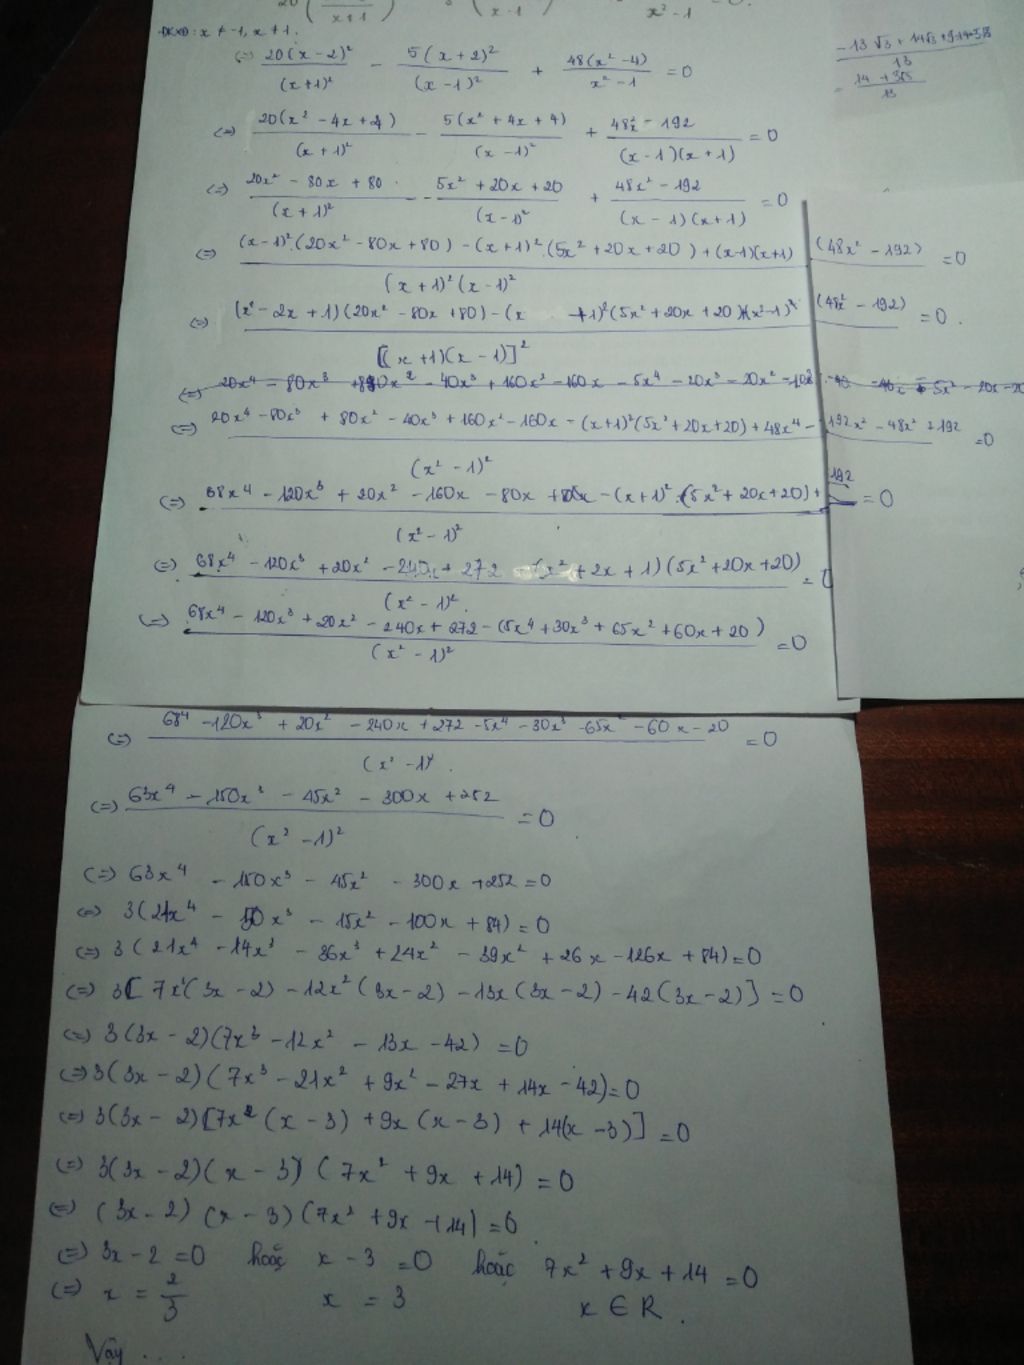 20( / x+1 ) ( / x-1 ) / x²-1 0.
ĐKXĐ: x ≠ -1, x ≠ 1.
-13√3 + 14√3 + / 13
= 14 + / 13
(=) 20(x-2)² / (x+1)² - 5(x+2)² / (x-1)² + 48(x²-4) / x²-1 = 0
(=) 20(x² - 4x + 4) / (x+1)² - 5(x² + 4x + 4) / (x-1)² + 48x² - 192 / (x-1)(x+1) = 0
(=) 20x² - 80x + 80 / (x+1)² - 5x² + 20x + 20 / (x-1)² + 48x² - 192 / (x-1)(x+1) = 0
(=) (x-1)².(20x² - 80x + 80) - (x+1)².(5x² + 20x + 20) + (x-1)(x+1) (48x² - 192) / (x+1)²(x-1)² = 0
(=) (x² - 2x + 1)(20x² - 80x + 80) - (x +1)²(5x² + 20x + 20)+(x²-1) (48x² - 192) / [(x+1)(x-1)]² = 0.
(=) 20x⁴ - 80x³ + 80x² - 40x³ + 160x² - 160x - 5x⁴ - 20x³ - 20x²
(=) 20x⁴ - 80x³ + 80x² - 40x³ + 160x² - 160x - (x+1)²(5x² + 20x + 20) + 48x⁴ - 192x² - 48x² + 192 / (x² - 1)² = 0
(=) 68x⁴ - 120x³ + 20x² - 160x - 80x + 80 - (x+1)².(5x² + 20x + 20) + 192 / (x² - 1)² = 0
(=) 68x⁴ - 120x³ + 20x² - 240x + 272 - (x² + 2x + 1)(5x² + 20x + 20) / (x² - 1)² = 0
(=) 68x⁴ - 120x³ + 20x² - 240x + 272 - (5x⁴ + 30x³ + 65x² + 60x + 20) / (x² - 1)² = 0
(=) 68⁴ - 120x³ + 20x² - 240x + 272 - 5x⁴ - 30x³ - 65x² - 60x - 20 / (x² - 1)² = 0
(=) 63x⁴ - 150x³ - 45x² - 300x + 252 / (x² - 1)² = 0
(=) 63x⁴ - 150x³ - 45x² - 300x + 252 = 0
(=) 3(21x⁴ - 50x³ - 15x² - 100x + 84) = 0
(=) 3(21x⁴ - 14x³ - 36x³ + 24x² - 39x² + 26x - 126x + 84) = 0
(=) 3[7x³(3x - 2) - 12x²(3x - 2) - 13x(3x - 2) - 42(3x - 2)] = 0
(=) 3(3x - 2)(7x³ - 12x² - 13x - 42) = 0
(=) 3(3x - 2)(7x³ - 21x² + 9x² - 27x + 14x - 42) = 0
(=) 3(3x - 2)[7x²(x - 3) + 9x(x - 3) + 14(x - 3)] = 0
(=) 3(3x - 2)(x - 3)(7x² + 9x + 14) = 0
(=) (3x - 2)(x - 3)(7x² + 9x + 14) = 0
(=) 3x - 2 = 0 hoặc x - 3 = 0 hoặc 7x² + 9x + 14 = 0
(=) x = 2/3 x = 3 x ∈ R.
Vậy ....